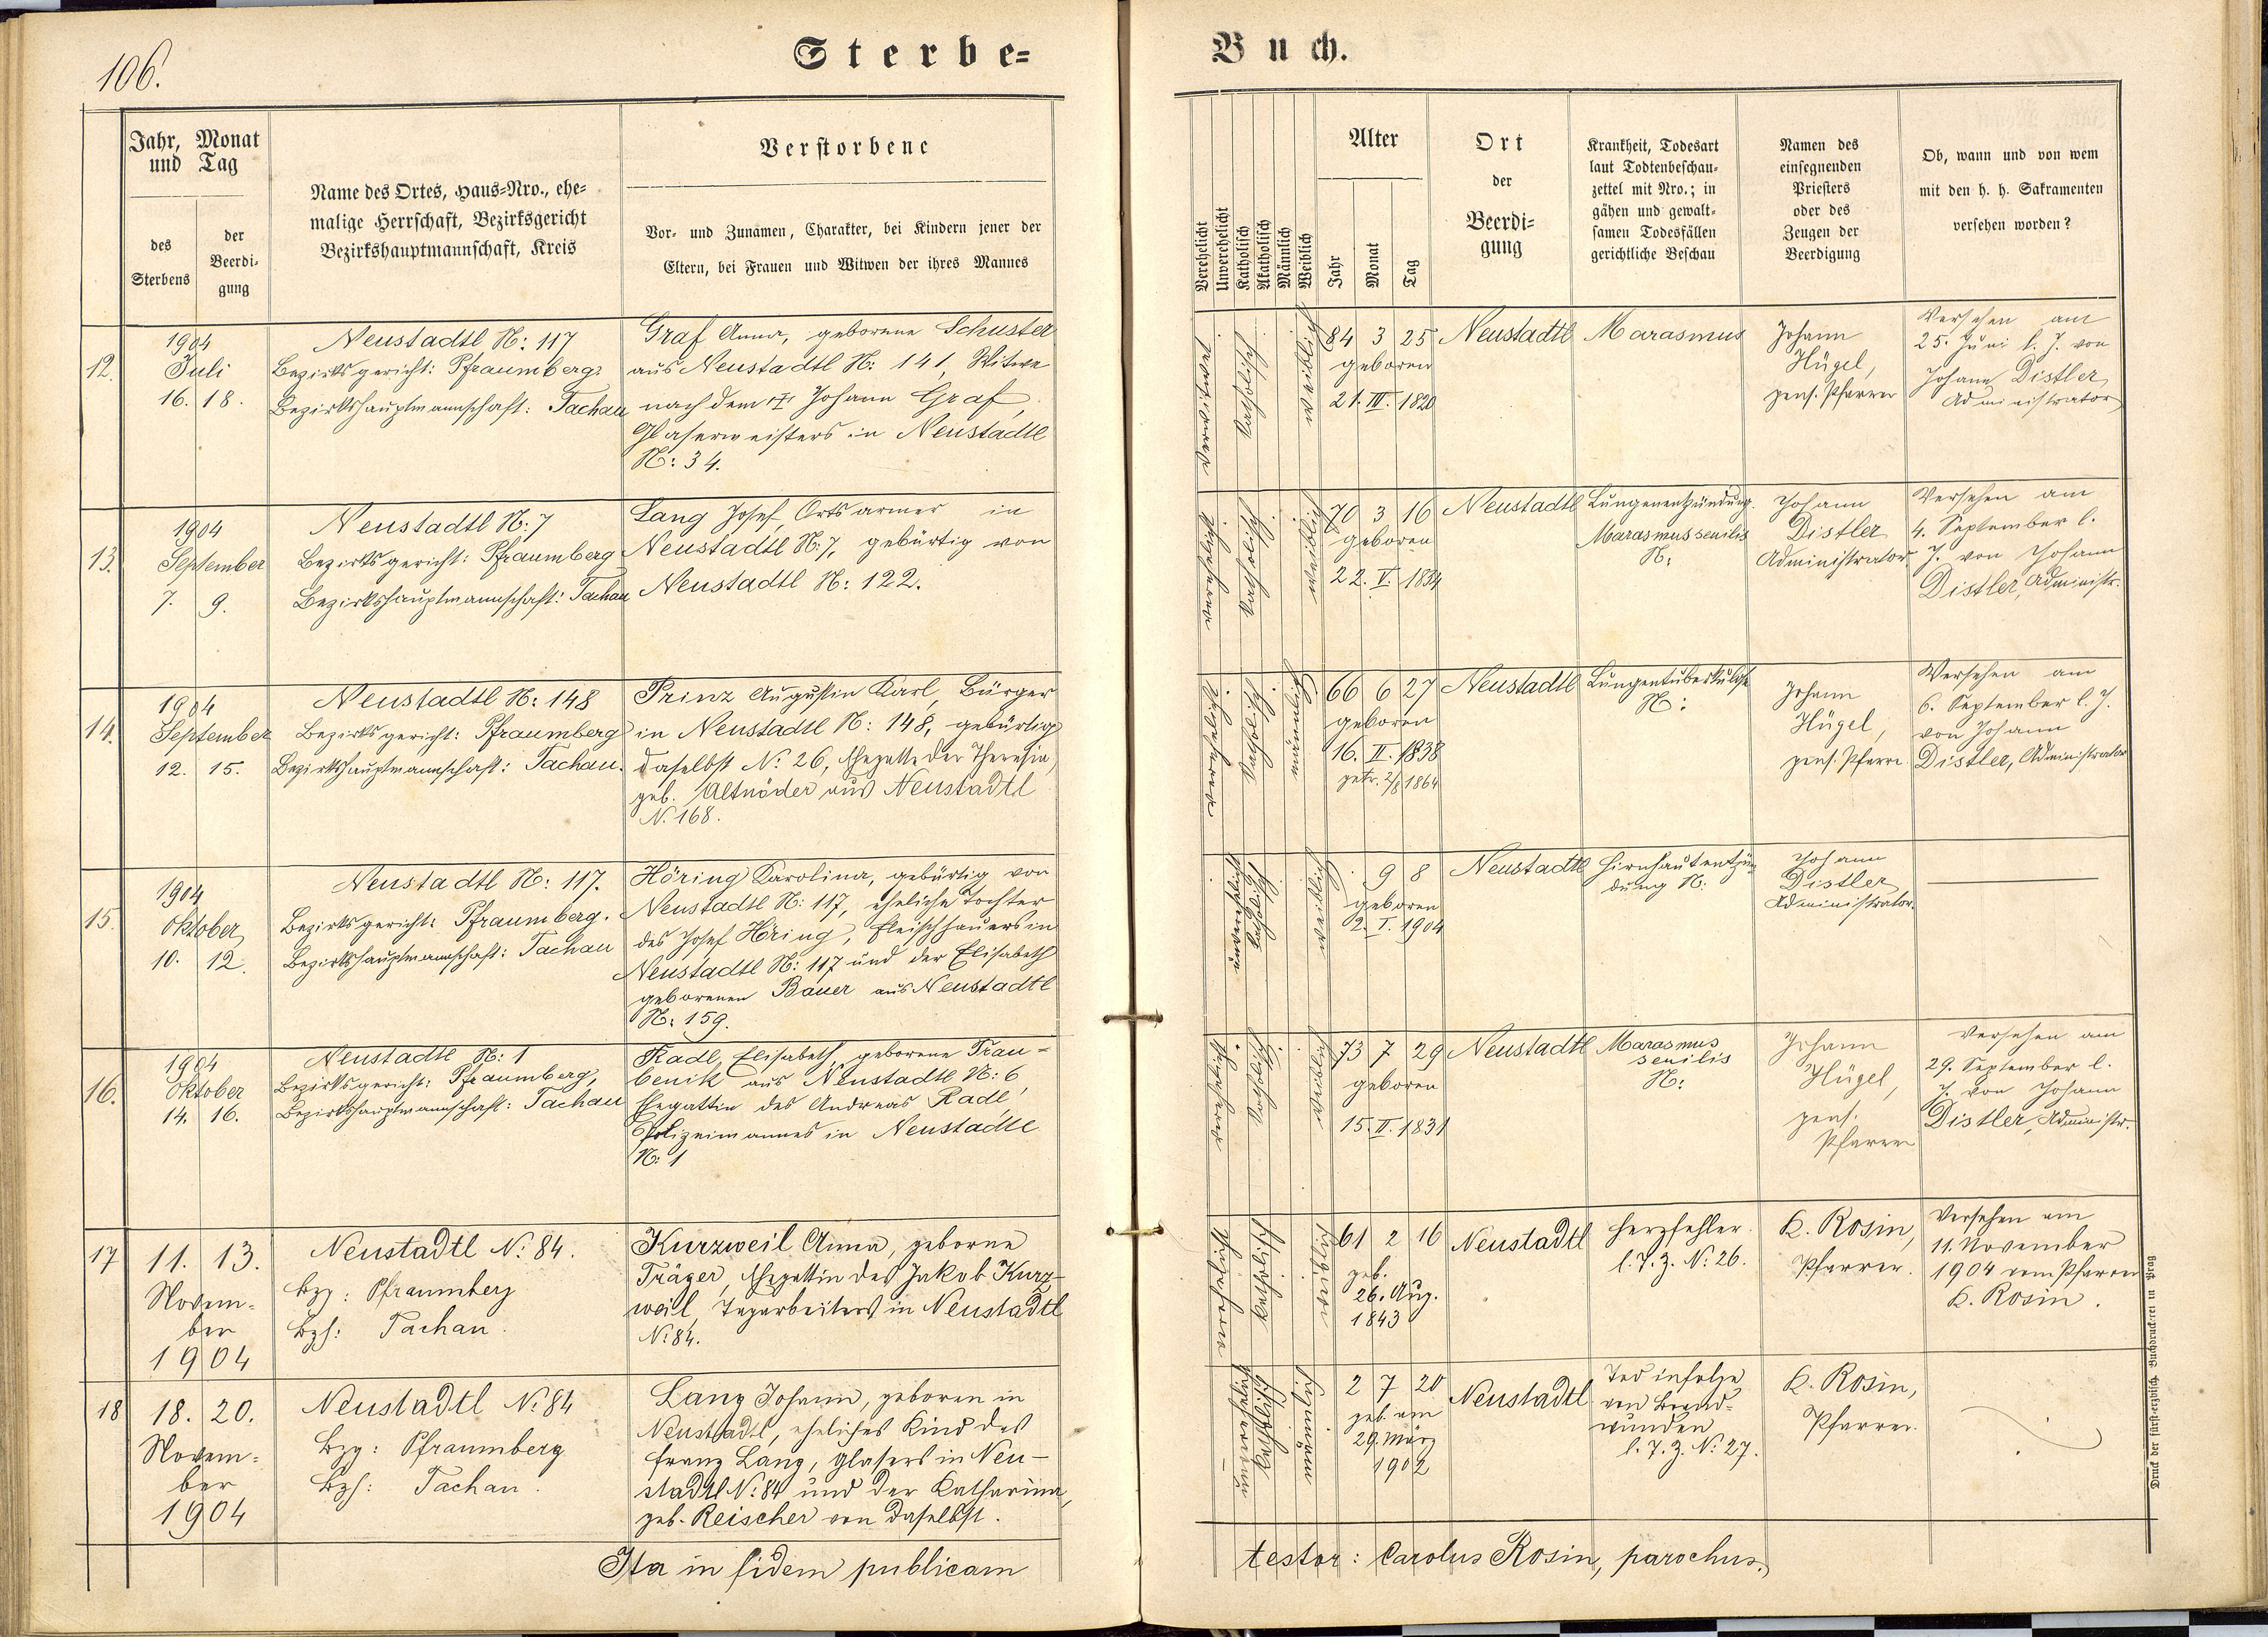 106.
Sterbe=
Buch.
Jahr, Monat
und Tag
des
Sterbens
der
Beerdi-
gung
Name des Ortes, Haus=Nro., ehe-
malige Herrschaft, Bezirksgericht
Bezirkshauptmannschaft, Kreis
Verstorbene
Vor- und Zunamen, Charakter, bei Kindern jener der
Eltern, bei Frauen und Witwen der ihres Mannes
Verehelicht
Unverehelicht
Katholisch
Akatholisch
Männlich
Weiblich
Alter
Jahr
Monat
Tag
Ort
der
Beerdi-
gung
Krankheit, Todesart
laut Todtenbeschau-
zettel mit Nro.; in
gähen und gewalt-
samen Todesfällen
gerichtliche Beschau
Namen des
einsegnenden
Priesters
oder des
Zeugen der
Beerdigung
Ob, wann und von wem
mit den h. h. Sakramenten
versehen worden?
12.
1904
Juli
16. 18.
Neustadtl N: 117
Bezirksgericht: Pfraumberg.
Bezirkshauptmannschaft: Tachau
Graf Anna, geborene Schuster
aus Neustadtl N: 141, Witwe
nach dem Johann Graf,
Glasermeisters in Neustadtl
N: 34.
katholisch
weiblich
84 3 25
geboren
21. III. 1820
Neustadtl
Marasmus
Johann
Hügel,
pens. Pfarrer
Versehen am
25. Juni l. J. von
Johann Distler,
Administrator
13.
1904
September
7. 9.
Neustadtl N: 7
Bezirksgericht: Pfraumberg
Bezirkshauptmannschaft: Tachau
Lang Josef, Ortsarmer in
Neustadtl N: 7, gebürtig von
Neustadtl N: 122.
katholisch
weiblich
70 3 16
geboren
22. V. 1834
Neustadtl
Lungenentzündung.
Marasmus senilis
N:
Johann
Distler
Administrator.
Versehen am
4. September l.
J. von Johann
Distler, Administr.
14.
1904
September
12. 15.
Neustadtl N: 148
Bezirksgericht: Pfraumberg
Bezirkshauptmannschaft: Tachau.
Prinz Augustin Karl, Bürger
in Neustadtl N: 148, gebürtig
daselbst N: 26, Ehegatte der Theresia,
geb. Altnöder aus Neustadtl
N. 168.
katholisch
männlich
66 6 27
geboren
16. II. 1838
getr. 2/8 1864
Neustadtl
Lungentuberkulose
N:
Johann
Hügel,
pens. Pfarrer
Versehen am
6. September l. J.
von Johann
Distler, Administrator
15.
1904
Oktober
10. 12.
Neustadtl N: 117.
Bezirksgericht: Pfraumberg.
Bezirkshauptmannschaft: Tachau
Höring Karolina, gebürtig von
Neustadtl N: 117, eheliche Tochter
des Josef Höring, Fleischhauers in
Neustadtl N: 117 und der Elisabeth
geborenen Bauer aus Neustadtl
N: 159.
unverehelicht
katholisch
weiblich
9 8
geboren
2. I. 1904
Neustadtl
Hirnhautentzün
dung N:
Johann
Distler
Administrator.
16.
1904
Oktober
14. 16.
Neustadtl N: 1
Bezirksgericht: Pfraumberg,
Bezirkshauptmannschaft: Tachau
Radl, Elisabeth, geborene Trau=
benik aus Neustadtl N: 6,
Ehegattin des Andreas Radl,
Polizeimannes in Neustadtl
N: 1
katholisch
weiblich
73 7 29
geboren
15. II. 1831
Neustadtl
Marasmus
senilis
N:
Johann
Hügel,
pens.
Pfarrer
Versehen am
29. September l.
J. von Johann
Distler, Administr.
17
11. 13.
Novem-
ber
1904
Neustadtl N: 84.
Bzg: Pfraumberg
Bzh: Tachau.
Kurzweil Anna, geborne
Träger, Ehegattin des Jakob Kurz-
weil, Tagarbeiters in Neustadtl
N: 84.
katholisch
weiblich
61 2 16
geb.
26. Aug.
1843
Neustadtl
Herzfehler.
l. T. Z. N: 26.
K. Rosin,
Pfarrer.
Versehen am
11. November
1904 vom Pfarrer
K. Rosin.
18
18. 20.
Novem-
ber
1904
Neustadtl N: 84
Bzg: Pfraumberg
Bzh: Tachau.
Lang Johann, geboren in
Neustadtl, eheliches Kind des
Franz Lang, Glasers in Neu-
stadtl N: 84 und der Katharina,
geb. Reischer von daselbst.
katholisch
männlich
2 7 20
geb. am
29. März
1902
Neustadtl
Tod infolge
von Brand-
wunden
l. T. Z. N: 27.
K. Rosin,
Pfarrer.
Ita in fidem publicam
testor: Carolus Rosin, parochus.
Druck der fürst-erzbisch. Buchdruckerei in Prag